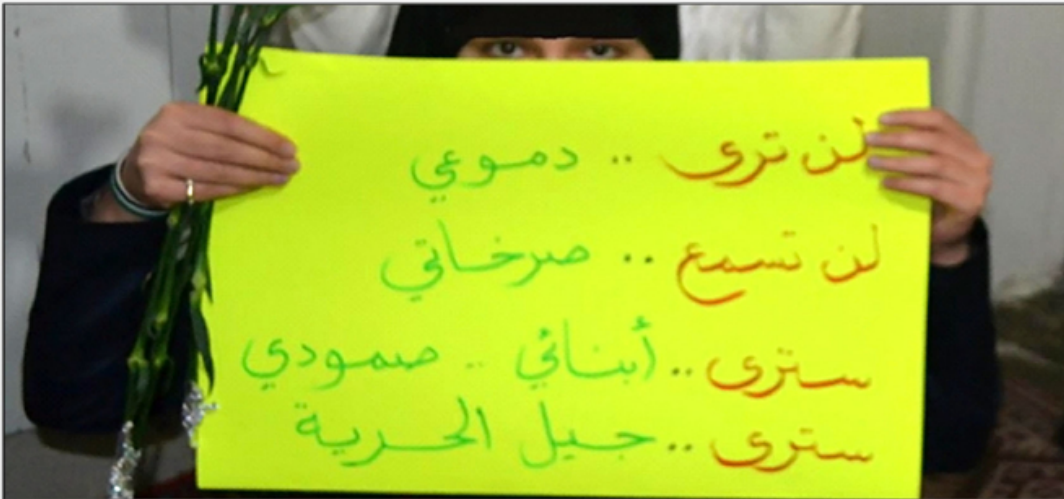 لن ترى .. دموعي
لن تسمع .. صرخاتي
سترى .. أبنائي .. صمودي
سترى .. جيل الحرية